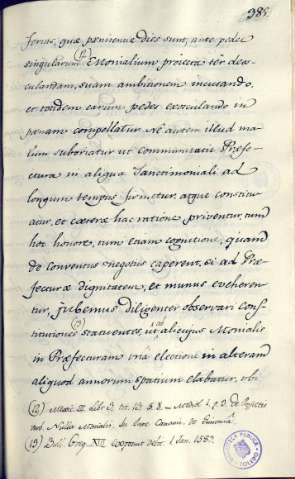 385.
ferius, quæ penitentiæ dies sunt, ante pedes
singularum (12) Monialium proiecta se des-
culandam, suam ambitionem incusando,
et totidem earum pedes exosculando in
penam compellatur. Ne autem illud ma-
lum suboriatur ut communicata Præfe-
ctura in aliqua Sanctimoniali ad
longum tempus firmetur, atque constitu-
atur, et cæteræ hac ratione priventur, tum
hoc honore, tum etiam cognitione, quam
de conventus negotiis caperent, si ad Præ-
fecturæ dignitatem, et munus eveheren-
tur, jubemus diligenter observari const-
itutiones (13) statuentes, ut alicujus Monialis
in Præfecturam una electione in alteram
aliquod annorum spatium elabatur, ubi
(12)
(13) Bull. Greg. XIII 1 Jan. 1583.